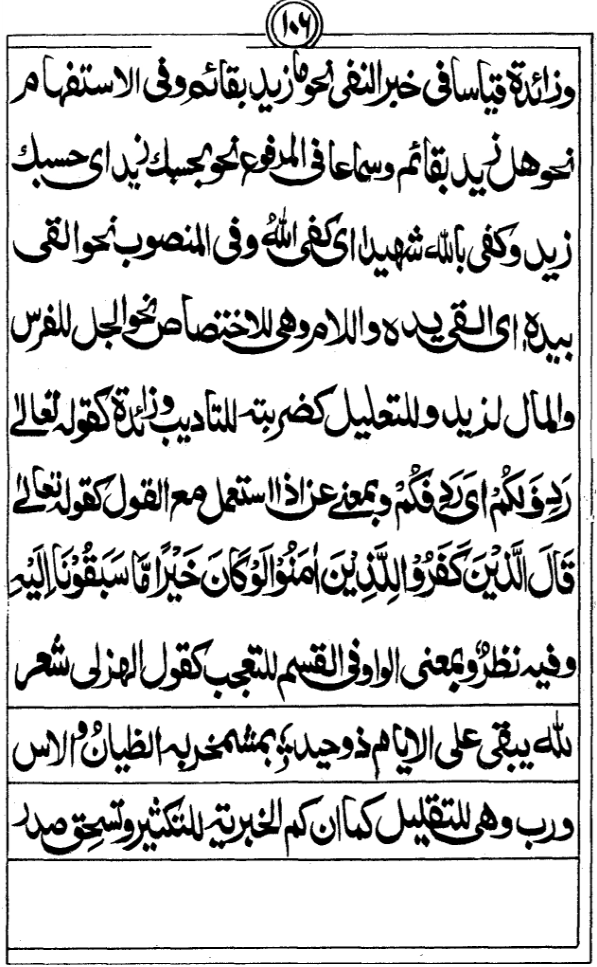 ١٠٦
وزائدة قياسا فى خبر النفى نحو ما زيد بقائم وفى الاستفهام
نحو هل زيد بقائم وسماعا فى المرفوع نحو بحسبك زيد اى حسبك
زيد وكفى بالله شهيدا اى كفى اللهُ وفى المنصوب نحو القى
بيده اى القى يده واللام وهى للاختصاص نحو الجل للفرس
والمال لزيد وللتعليل كضربته للتاديب وزائدة كقوله تعالىٰ
رَدِفَ لَكُمْ اى رَدِفَكُمْ وبمعنى عن اذا استعمل مع القول كقوله تعالىٰ
قَالَ الَّذِيْنَ كَفَرُوْا لِلَّذِيْنَ اٰمَنُوْا لَوْ كَانَ خَيْرًا مَّا سَبَقُوْنَا اِلَيْهِ
وفيه نظرٌ وبمعنى الواو فى القسم للتعجب كقول الهزلى شعر
لله يبقى على الايام ذو حيد؛ بمشمخر به الظيانُ والاس
ورب وهى للتقليل كما ان كم الخبرية للتكثير وتستحق صدر